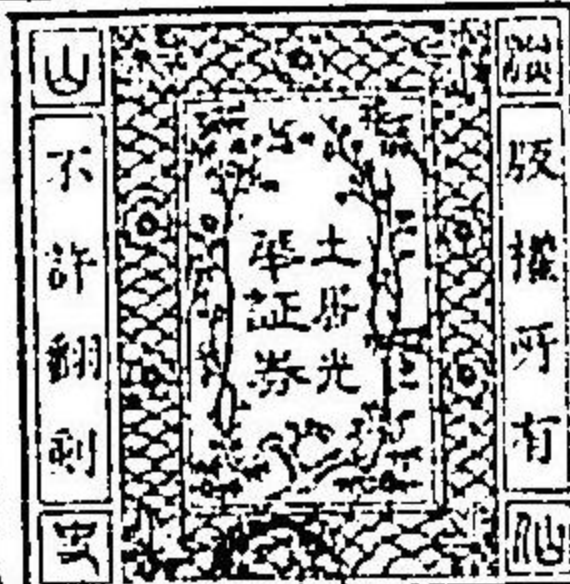 版權所有
土居光
華証券
不許翻刻
山
仙
史